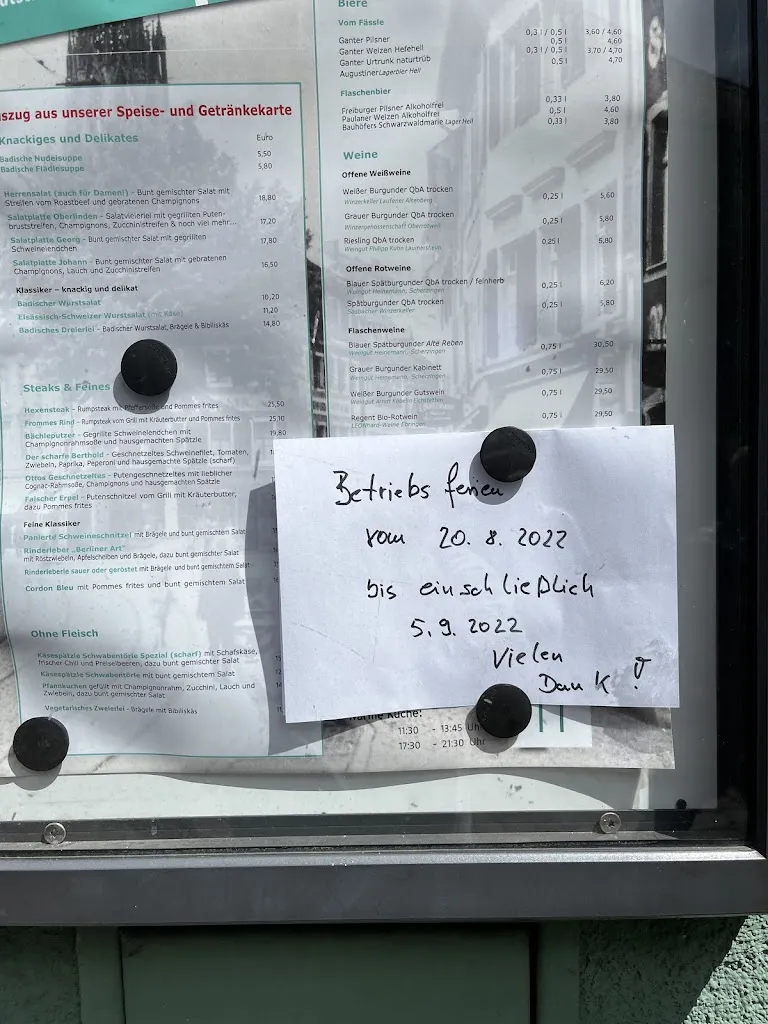 szug aus unserer Speise- und Getränkekarte
Knackiges und Delikates Euro
Badische Nudelsuppe 5,50
Badische Flädlesuppe 5,80
Herrensalat (auch für Damen!) - Bunt gemischter Salat mit
Streifen vom Roastbeef und gebratenen Champignons 18,80
Salatplatte Oberlinden - Salatvielerlei mit gegrillten Puten-
bruststreifen, Champignons, Zucchinistreifen & noch viel mehr... 17,20
Salatplatte Georg - Bunt gemischter Salat mit gegrillten
Schweinelendchen 17,80
Salatplatte Johann - Bunt gemischter Salat mit gebratenen
Champignons, Lauch und Zucchinistreifen 16,50
Klassiker – knackig und delikat
Badischer Wurstsalat 10,20
Elsässisch-Schweizer Wurstsalat (mit Käse) 11,20
Badisches Dreierlei - Badischer Wurstsalat, Brägele & Bibiliskäs 14,80
Steaks & Feines
Hexensteak - Rumpsteak mit Pfeffersoße und Pommes frites 25,50
Frommes Rind - Rumpsteak vom Grill mit Kräuterbutter und Pommes frites 25,10
Bächleputzer - Gegrillte Schweinelendchen mit
Champignonrahmsoße und hausgemachten Spätzle 19,80
Der scharfe Berthold - Geschnetzeltes Schweinefilet, Tomaten,
Zwiebeln, Paprika, Peperoni und hausgemachte Spätzle (scharf)
Ottos Geschnetzeltes - Putengeschnetzeltes mit lieblicher
Cognac-Rahmsoße, Champignons und hausgemachten Spätzle
Falscher Erpel - Putenschnitzel vom Grill mit Kräuterbutter,
dazu Pommes frites
Feine Klassiker
Panierte Schweineschnitzel mit Brägele und bunt gemischtem Salat
Rinderleber „Berliner Art"
mit Röstzwiebeln, Apfelscheiben und Brägele, dazu bunt gemischter Salat
Rinderleberle sauer oder geröstet mit Brägele und bunt gemischtem Salat
Cordon Bleu mit Pommes frites und bunt gemischtem Salat
Ohne Fleisch
Käsespätzle Schwabentörle Spezial (scharf) mit Schafskäse,
frischer Chili und Preiselbeeren, dazu bunt gemischter Salat
Käsespätzle Schwabentörle mit buntem gemischtem Salat
Pfannkuchen gefüllt mit Champignonrahm, Zucchini, Lauch und
Zwiebeln, dazu bunt gemischter Salat
Vegetarisches Zweierlei - Brägele mit Bibiliskäs
Biere
Vom Fässle
Ganter Pilsner 0,3 l / 0,5 l 3,60 / 4,60
Ganter Weizen Hefehell 0,5 l 4,60
Ganter Urtrunk naturtrüb 0,3 l / 0,5 l 3,70 / 4,70
Augustiner Lagerbier Hell 0,5 l 4,70
Flaschenbier
Freiburger Pilsner Alkoholfrei 0,33 l 3,80
Paulaner Weizen Alkoholfrei 0,5 l 4,60
Bauhöfers Schwarzwaldmarie Lager Hell 0,33 l 3,80
Weine
Offene Weißweine
Weißer Burgunder QbA trocken 0,25 l 5,60
Winzerkeller Laufener Altenberg
Grauer Burgunder QbA trocken 0,25 l 5,80
Winzergenossenschaft Oberrotweil
Riesling QbA trocken 0,25 l 5,80
Weingut Philipp Kuhn Laumersheim
Offene Rotweine
Blauer Spätburgunder QbA trocken / feinherb 0,25 l 6,20
Weingut Heinemann, Scherzingen
Spätburgunder QbA trocken 0,25 l 5,80
Sasbacher Winzerkeller
Flaschenweine
Blauer Spätburgunder Alte Reben 0,75 l 30,50
Weingut Heinemann, Scherzingen
Grauer Burgunder Kabinett 0,75 l 29,50
Weingut Heinemann, Scherzingen
Weißer Burgunder Gutswein 0,75 l 29,50
Regent Bio-Rotwein 0,75 l 29,50
Betriebsferien
vom 20. 8. 2022
bis einschließlich
5. 9. 2022
Vielen
Dank!
Warme Küche:
11:30 - 13:45 Uhr
17:30 - 21:30 Uhr